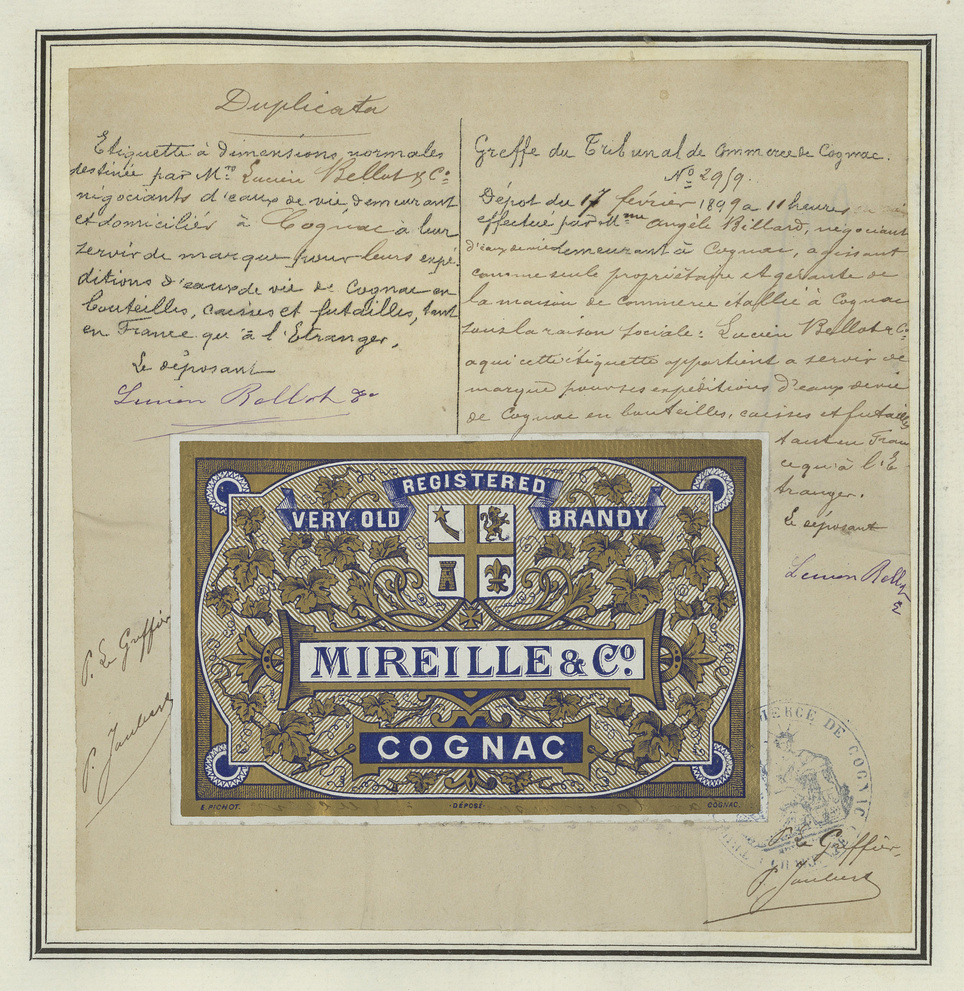 Duplicata
Etiquette à dimensions normales
destinée par Mrs Lucien Bellot & Co
négociants d'eaux de vie demeurant
et domiciliés à Cognac à leur
servir de marque pour leurs expé-
ditions d'eaux de vie de Cognac en
bouteilles, caisses et futailles, tant
en France qu'à l'Etranger.
Le déposant
Lucien Bellot & Co
Greffe du Tribunal de Commerce de Cognac.
No 2919.
Dépôt du 17 février 1899 a 11 heures
effectué par Mme Angèle Billard, négociant
d'eaux de vie demeurant à Cognac, agissant
comme seule propriétaire et gérante de
la maison de commerce établie à Cognac
sous la raison sociale: Lucien Bellot & Co
a qui cette étiquette appartient a servir de
marque pour ses expéditions d'eaux de vie
de Cognac en bouteilles, caisses et futailles
tant en Fran
ce qu'à l'E
tranger.
Le déposant
Lucien Bellot
&
REGISTERED
VERY OLD BRANDY
MIREILLE & Co
COGNAC
E. PICHOT. -DÉPOSÉ- COGNAC.
P. Le Greffier
P. Jaubert
MERCE DE COGNAC
P. Le Greffier,
P. Jaubert